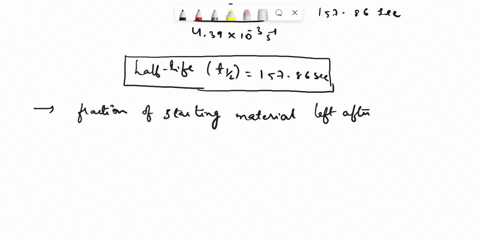 157.86 sec
4.39 × 10⁻³ s⁻¹
half-life (t½) = 157.86 sec
→ fraction of starting material left after